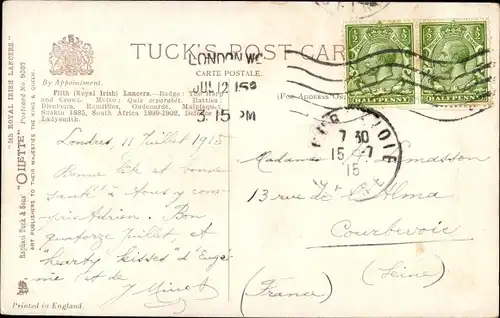 TUCK'S POST CARD
CARTE POSTALE.
(FOR ADDRESS ON
By Appointment.
Fifth (Royal Irish) Lancers.—Badge: The Harp
and Crown. Motto: Quis separabit. Battles:
Blenheim, Ramillies, Oudenarde, Malplaquet,
Suakin 1885, South Africa 1899-1902, Defence of
Ladysmith.
"5th ROYAL IRISH LANCERS"
Postcard No. 9067
Raphael Tuck & Sons' "OILETTE"
ART PUBLISHERS TO THEIR MAJESTIES THE KING & QUEEN.
LONDON W.C
JUL 12 15
3.15 PM
HALFPENNY
HALFPENNY
COURBEVOIE
7 30
15 -7
15
Londres, 11 Juillet 1915
Bonne fête et bonne
santé Nous y
Adrien. Bon
quatorze Juillet et
"hearty kisses" d'Eugé-
nie et de
J Minot
Madame
13 rue de l'Alma
Courbevoie
(Seine)
(France)
Printed in England.